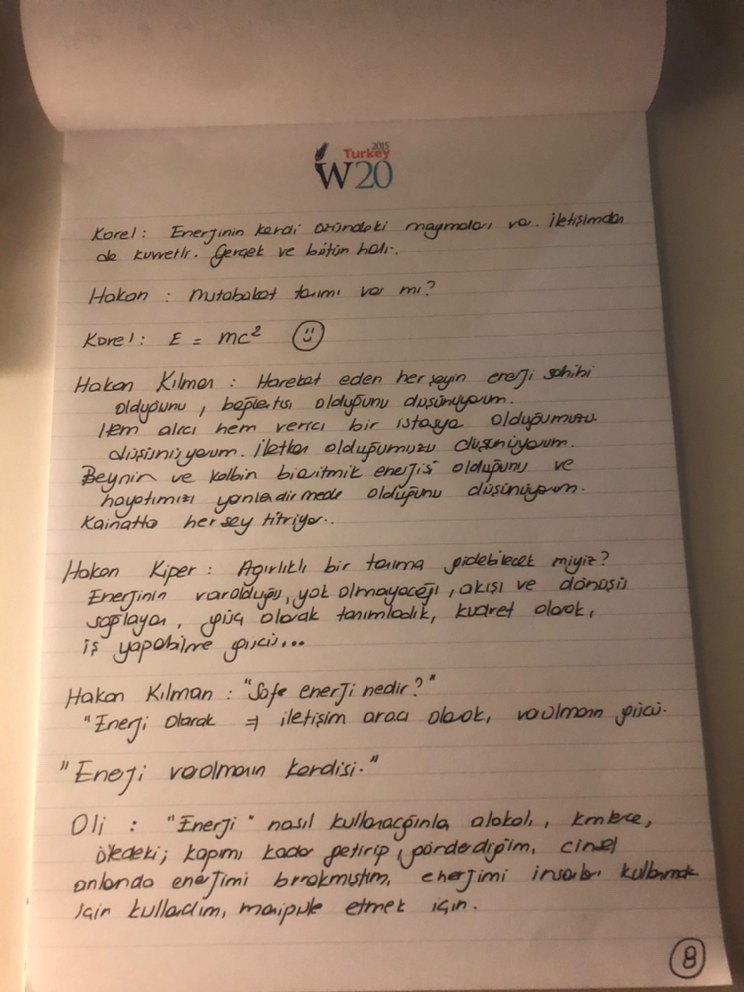 2015
Turkey
W20
Korel: Enerjinin kendi özündeki var. İletişimden
de kuvvetli. Gerçek ve bütün hali.
Hakan : mutabakat tanımı var mı?
Korel: E = mc²
Hakan Kılman : Hareket eden her şeyin enerji sahibi
olduğunu, olduğunu düşünüyorum.
Hem alıcı hem verici bir istasyon olduğumuzu
düşünüyorum. İletken olduğumuzu düşünüyorum.
Beynin ve kalbin bioritmik enerjisi olduğunu ve
hayatımızı yönlendirmede olduğunu düşünüyorum.
Kainatta her şey titriyor..
Hakan Kiper : Ağırlıklı bir tanıma gidebilecek miyiz?
Enerjinin varolduğu, yok olmayacağı, akışı ve dönüşü
sağlayan, güç olarak tanımladık, kudret olarak,
iş yapabilme gücü...
Hakan Kılman : "Safe enerji nedir?"
"Enerji olarak ⇒ iletişim aracı olarak, varolmanın gücü.
"Enerji varolmanın kendisi."
Oli : "Enerji" nasıl kullanacağınla alakalı,
ötedeki; kapımı kadar getirip, gönderdiğim, cinsel
anlamda enerjimi bırakmıştım, enerjimi insanları kullanmak
için kulladım, maipule etmek için.
8